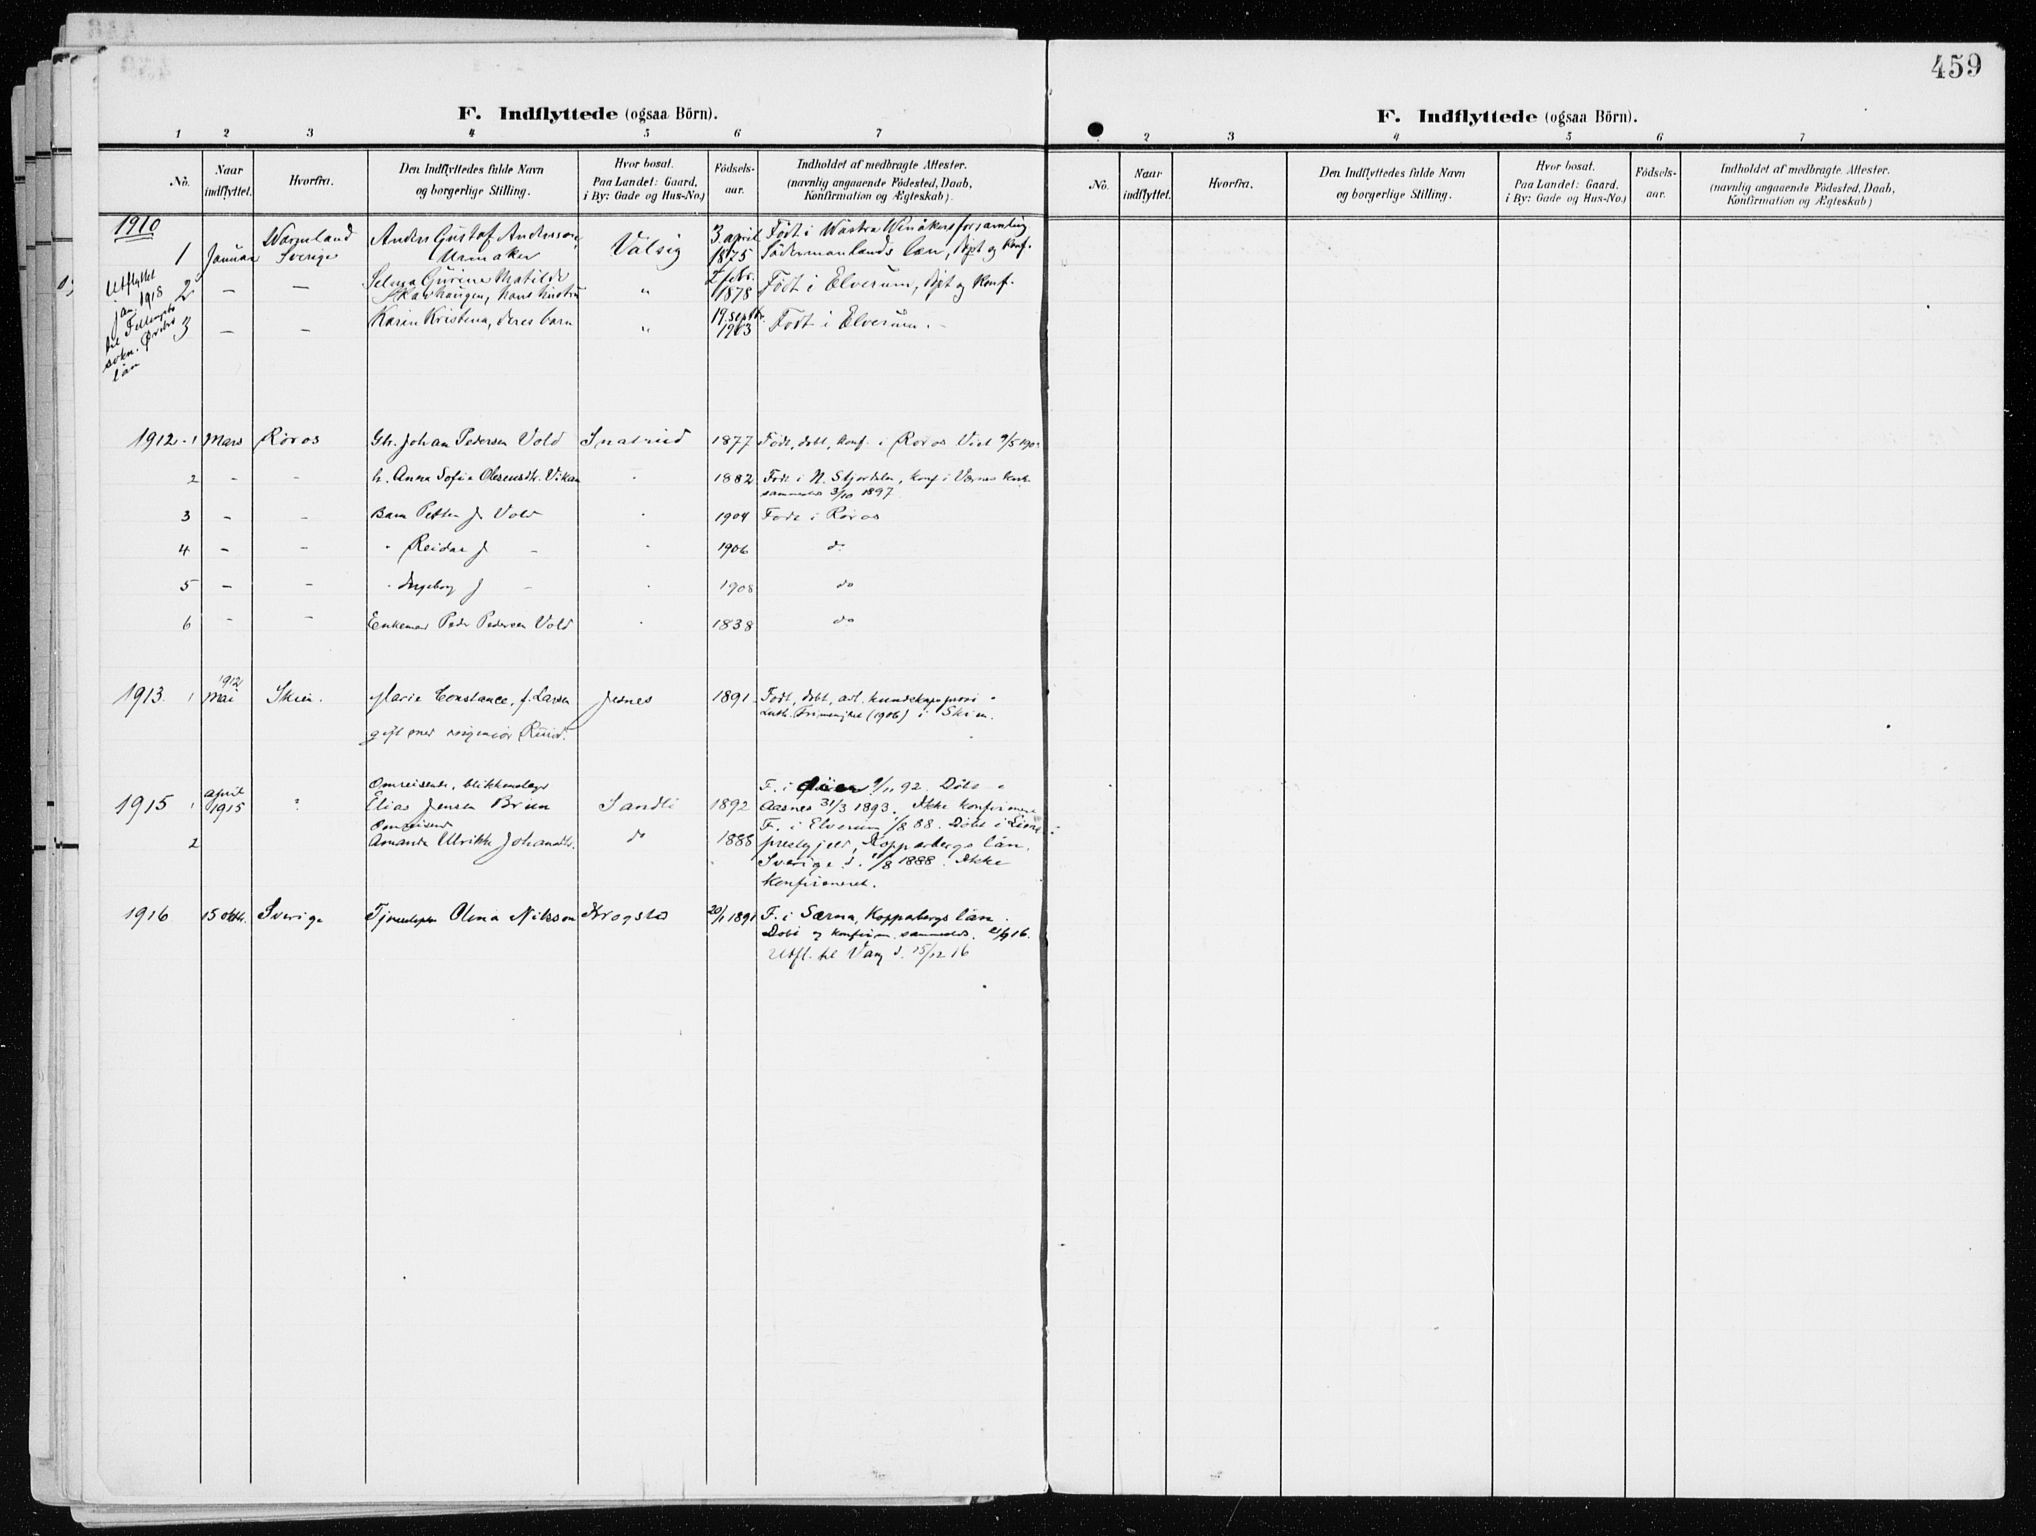 459
F. Indflyttede (ogsaa Börn).
1 2 3 4 5 6 7
No. Naar indflyttet. Hvorfra. Den Indflyttedes fulde Navn og borgerlige Stilling. Hvor bosat. Paa Landet: Gaard, i By: Gade og Hus-No.) Födsels-aar. Indholdet af medbragte Attester. (navnlig angaaende Födested, Daab, Konfirmation og Ægteskab).
1910
1 Januar Warmland Sverige Anders Gustaf Andersson, Urmaker Valsig 3 april 1875 Födt i Wästra Winåkers forsamling Södermanlands län, døpt og konf.
2 — — Selma Gurine Matilde Skarhaugen, hans hustru " 2 febr. 1878 Födt i Elverum, døpt og konf.
3 — — Karin Kristina, deres barn " 19. septbr. 1903 Födt i Elverum. -
Utflyttet
jan. 1918
til
sokn. Örebro
län
1912 - 1 Mars Röros Gb. Johan Pedersen Vold Snatrud 1877 Födt, døbt, konf. i Röros Viet
2 - - h. Anna Sofie Olesensdtr. Vikan - 1882 Födt i N. Stjördalen, konf i Værnes kirke
sammesteds 3/10 1897
3 - - Barn Petter J Vold - 1904 Födt i Röros
4 - - " Reidar J — - 1906 do
5 - - " Ingeborg J — - 1908 do
6 - - Enkemand Peder Pedersen Vold - 1838 do
1913. 1 1912 Mai Skien. Marie Constance, f. Larsen Jesnes 1891 Födt, døbt, avl. kundskapsprøve i
Luth. Frimenighet (1906) i Skien.
gift med ingeniør Ruud.
1915 1 april 1915 ? Omreisende, blikkenslager Elias Jensen Brun Sandli 1892 F. i 9/11 92. Døbt i
Aasnes 31/3 1893. Ikke konfirmeret
2 Omreisende Amanda Ulrikke Johansdtr. do 1888 F. i Elverum 1/8 88. Døbt i Lima
prestgjeld, Kopparbergs län,
Sverige d. /8 1888. Ikke
konfirmeret.
1916 15 oktbr. Sverige Tjenestepike Olina Nilsson Krogstad 20/1 1891 F. i Särna, Kopparbergs län.
Døbt og konfirm. sammesteds. 21/9 16.
Utfl. til Vang d. 15/12 16
F. Indflyttede (ogsaa Börn).
2 3 4 5 6 7
No. Naar indflyttet. Hvorfra. Den Indflyttedes fulde Navn og borgerlige Stilling. Hvor bosat. Paa Landet: Gaard, i By: Gade og Hus-No.) Födsels-aar. Indholdet af medbragte Attester. (navnlig angaaende Födested, Daab, Konfirmation og Ægteskab)